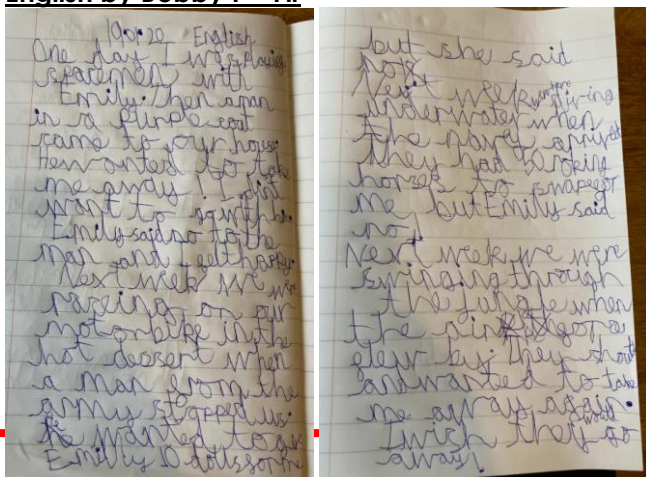 English by Bobby
19.01.20 English
One day I was playing
spacemen with
Emily. Then a man
in a purple coat
came to our house.
He wanted to take
me away! I didnt
want to go with him.
Emily said no to the
man and I felt happy.
Next week we were
raceing on our
motorbike in the
hot dessert when
a man from the
army stopped us.
He wanted to giv
Emilly 10 dolls for me
but she said
no!
Next week we were diving
underwater when
the navy arrived
they had rocking
horses to swap for
me but Emily said
no!
Next week we were
swinging through
the jungle when
the air
flew by. They shout
and wanted to take
me away again.
I wish they would go
away!